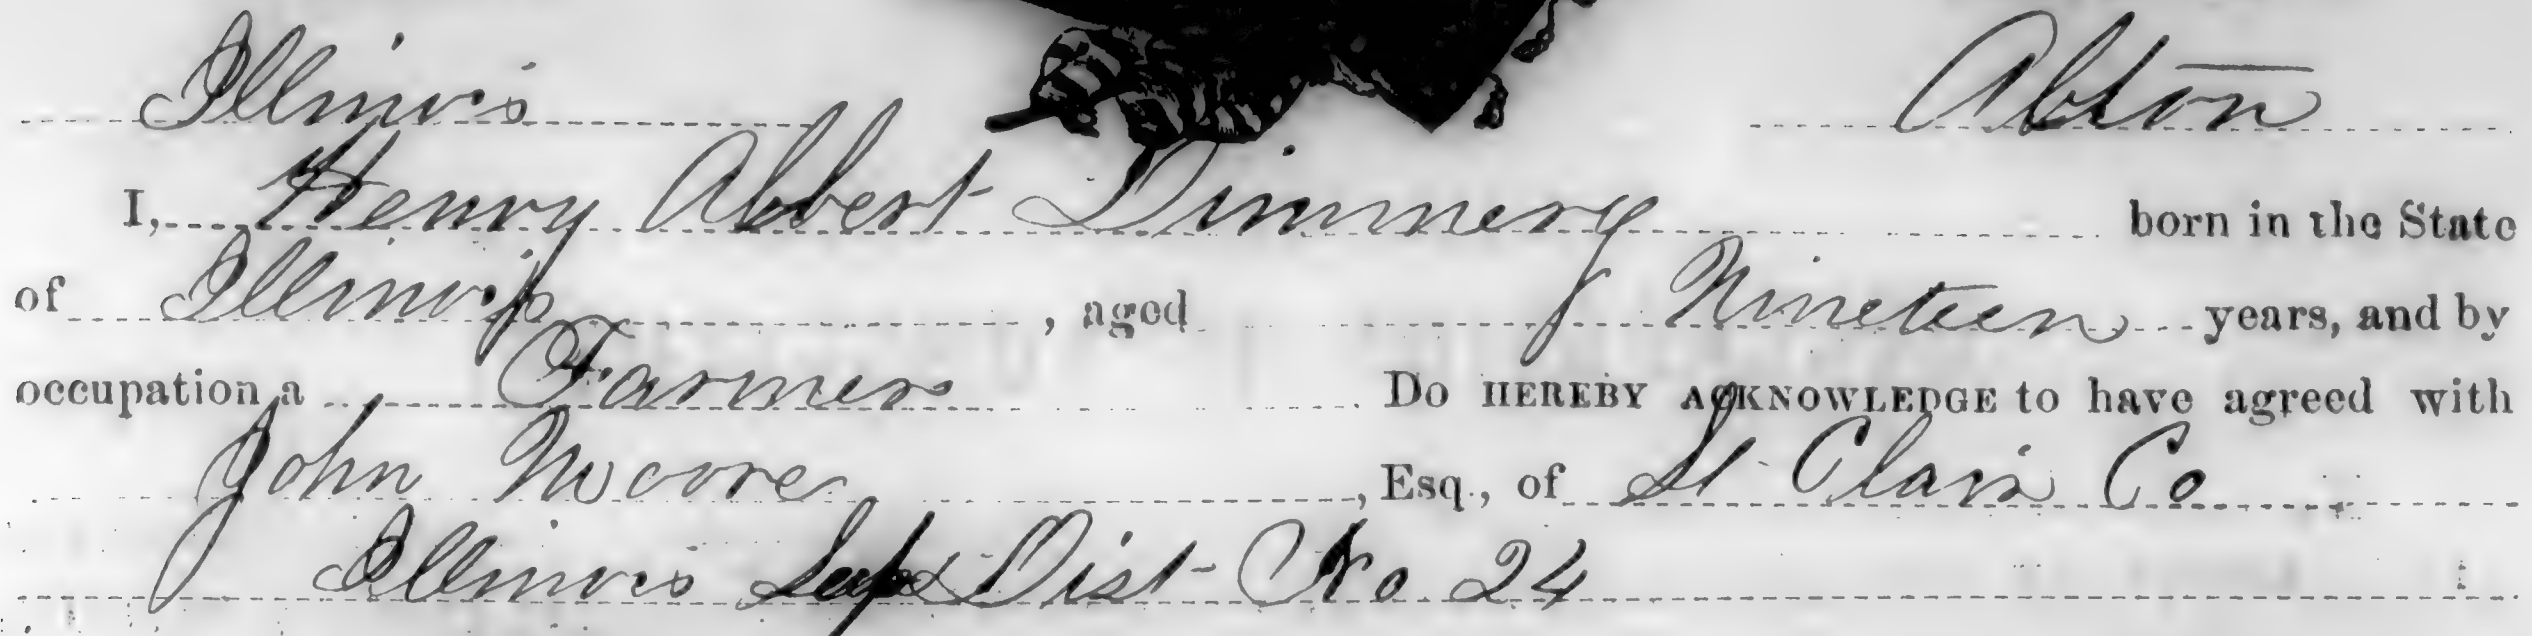 Illinois Alton
I, Henry Albert Dimmery born in the State
of Illinois, aged Nineteen years, and by
occupation a Farmer Do HEREBY ACKNOWLEDGE to have agreed with
John Moore, Esq., of St Clair Co
Illinois Dist No 24